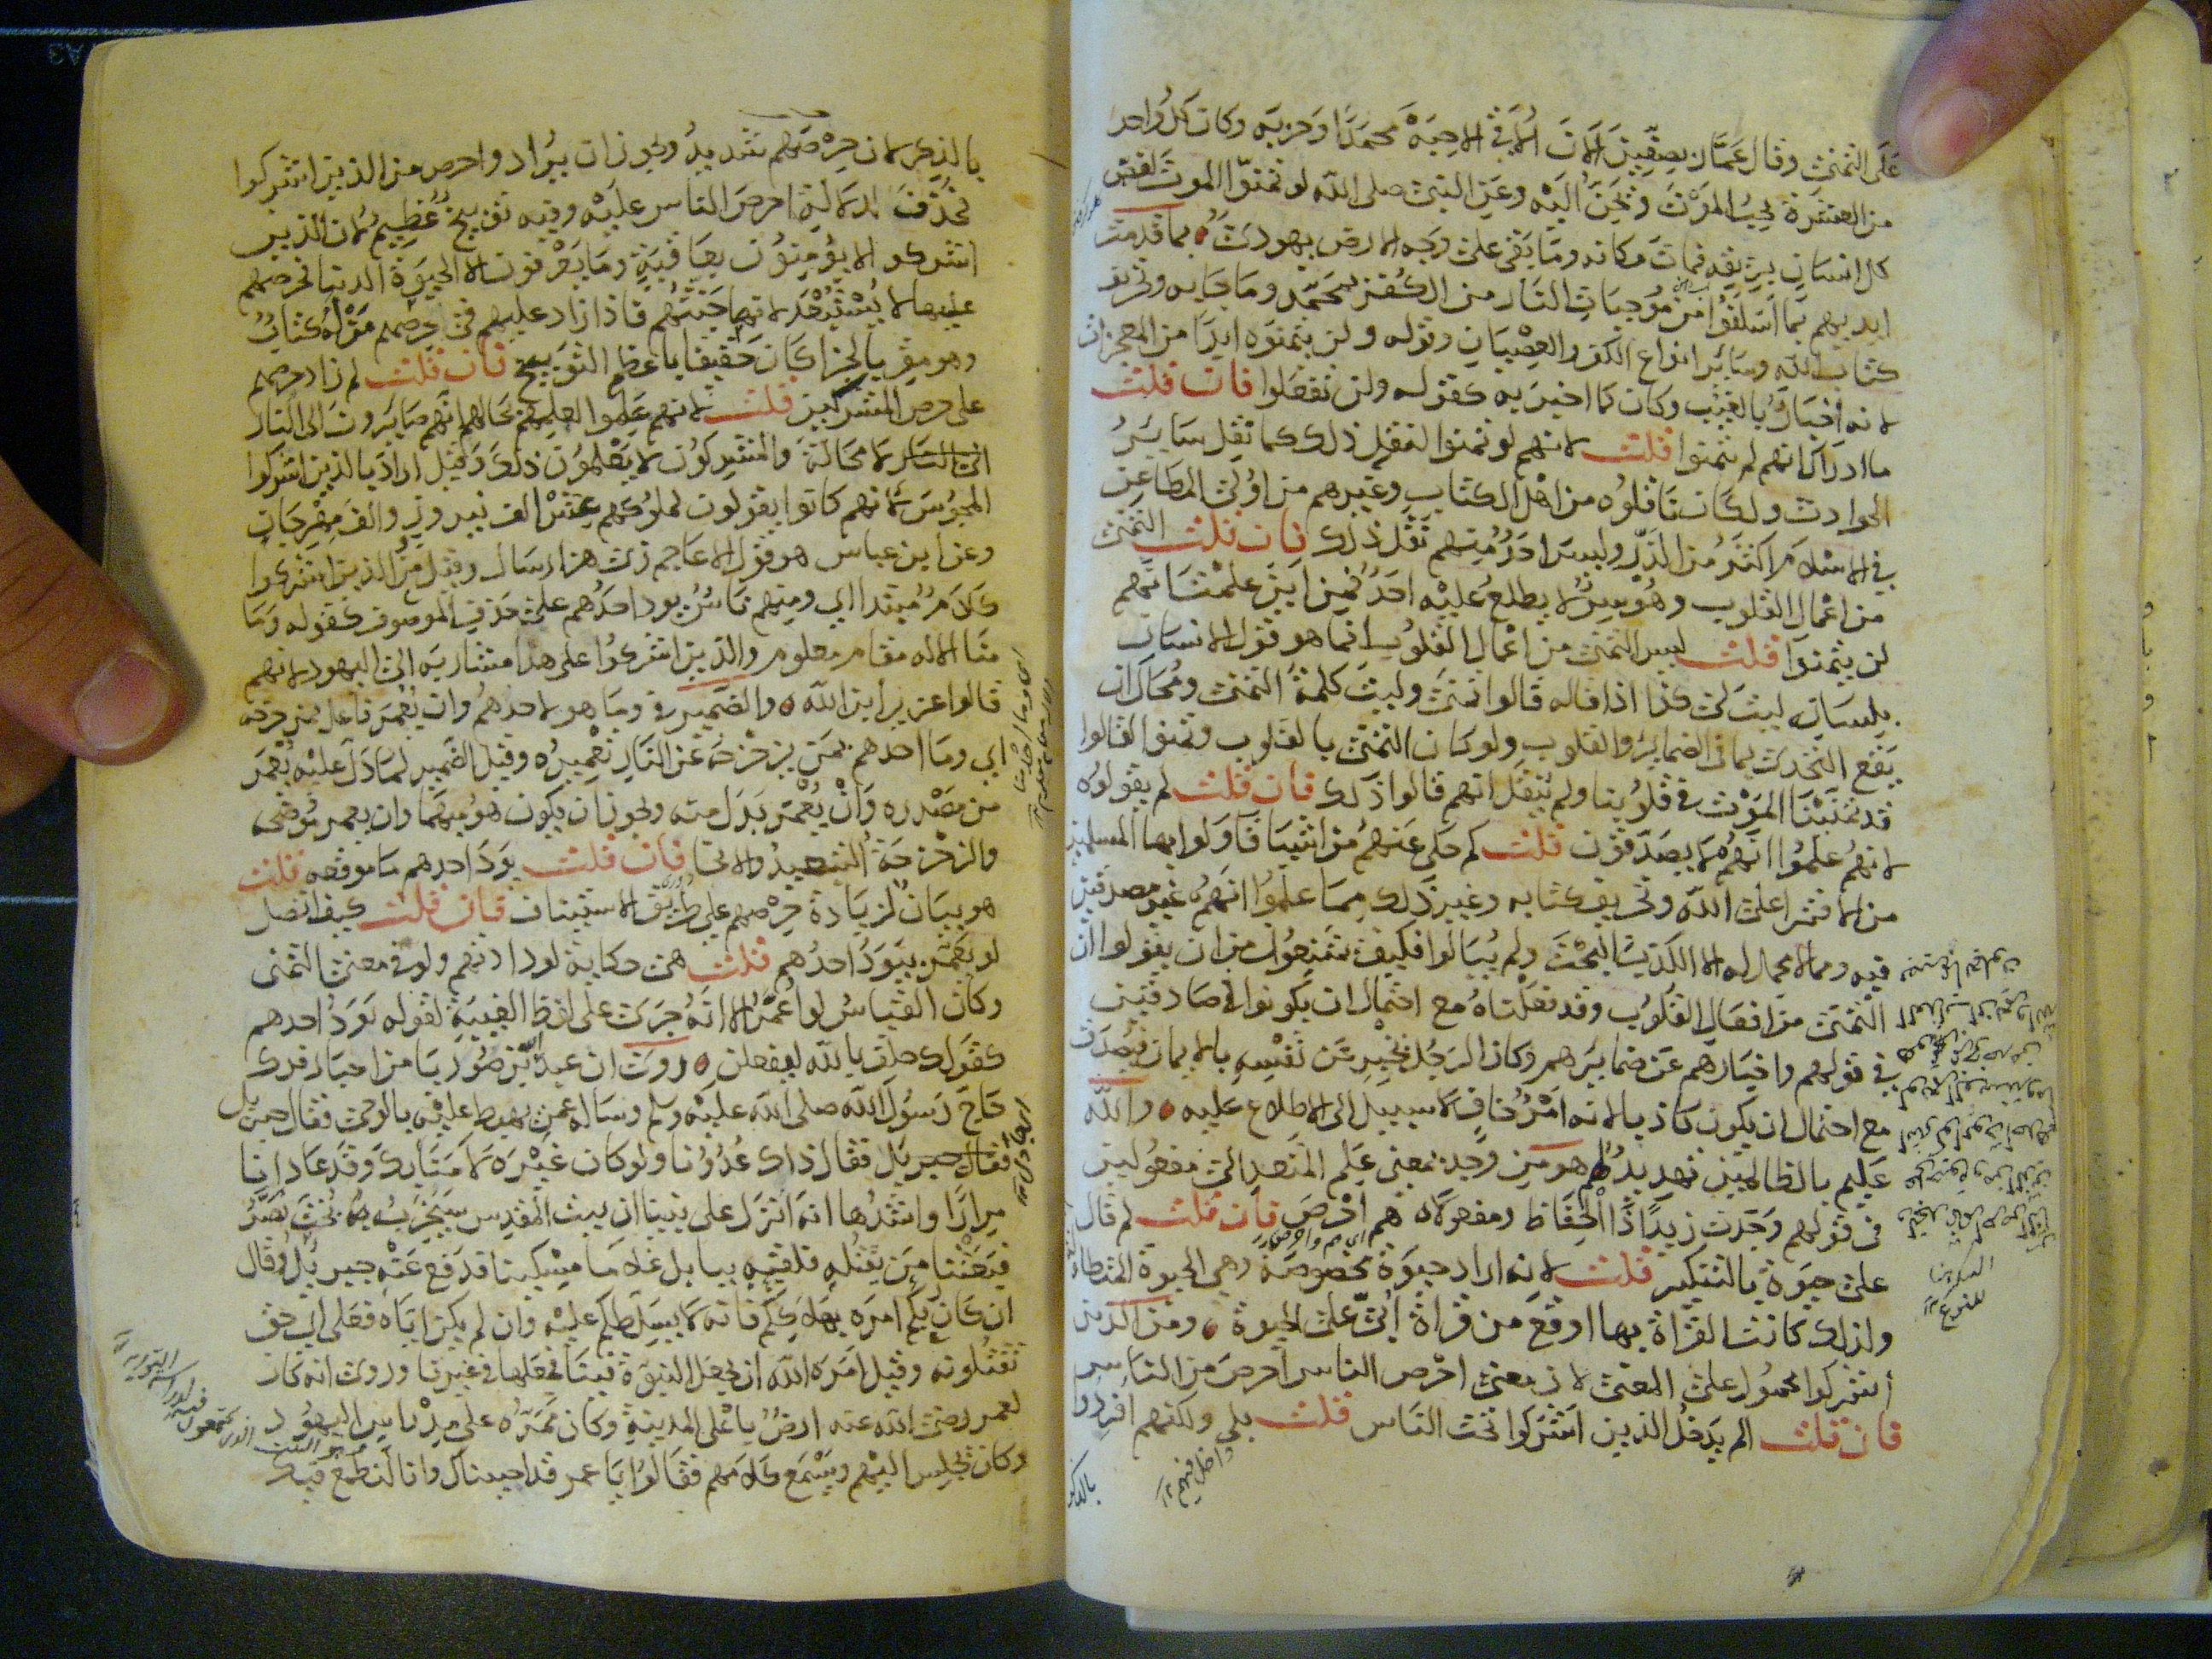 على التمنى وقال عمار بصفين الان ألاقى الاحبة محمدا وحزبه وكان كل واحد
من العشرة يحب الموت ويحن اليه وعن النبى صلى الله لو تمنوا الموت لغص
كل انسان بريقه فمات مكانه وما بقى على وجه الارض يهودى بما قدمت
ايديهم بما اسلفوا من موجبات النار من الكفر بمحمد وما جا به وتحريف
كتاب الله وساير انواع الكفر والعصيان وقوله ولن يتمنوه ابدا من المعجزات
لانه اخبار بالغيب وكان كما اخبر به كقوله ولن تفعلوا فان قلت
ما ادراك انهم لم يتمنوا قلت لانهم لو تمنوا لنقل ذلك كما نقل ساير
الحوادث ولكان ناقلوه من اهل الكتاب وغيرهم من اولى المطاعن
في الاسلام اكثر من الذر وليس احد منهم نقل ذلك فان قلت التمنى
من اعمال القلوب وهو سر لا يطلع عليه احد فمن اين علمت انهم
لن يتمنوا قلت ليس التمنى من اعمال القلوب انما هو قول الانسان
بلسانه ليت لى كذا اذا قاله قالوا تمنى وليت كلمة التمنى ومحال ان
يقع التحدى بما فى الضماير والقلوب ولو كان التمنى بالقلوب وتمنوا لقالوا
قد تمنينا الموت في قلوبنا ولم ينقل انهم قالوا ذلك فان قلت لم يقولوه
لانهم علموا انهم لا يصدقون قلت كم حكى عنهم من اشيا قاولوا بها المسلمين
من الافترا على الله وتحريف كتابه وغير ذلك مما علموا انهم غير مصدقين
فيه ومما لا محمل له الا الكذب البحت ولم يبالوا فكيف يمتنعون من ان يقولوا ان
التمنى من افعال القلوب وقد فعلناه مع احتمال ان يكونوا صادقين
في قولهم واخبارهم عن ضمايرهم وكان الرجل يخبر عن نفسه بالايمان فيصدق
مع احتمال ان يكون كاذبا لانه امر خاف لا سبيل الى الاطلاع عليه والله
عليم بالظالمين تهديد لهم هو من وجد بمعنى علم المتعدى الى مفعولين
فى قولهم وجدت زيدا ذا الحفاظ ومفعولاه هم احرص فان قلت لم قال
على حيوة بالتنكير قلت لانه اراد حيوة مخصوصة وهي الحيوة المتطاولة
ولذلك كانت القراة بها اوقع من قراة ابى على الحيوة ومن الذين
أشركوا محمول على المعنى لان معنى احرص الناس احرص من الناس
فان قلت الم يدخل الذين اشركوا تحت الناس قلت بلى ولكنهم افردوا
بالذكر
بالذكر لان حرصهم شديد ويجوز ان يراد واحرص من الذين اشركوا
فحذف لدلالة احرص الناس عليه وفيه توبيخ عظيم لان الذين
اشركوا لا يؤمنون بعاقبة وما يعرفون الا الحيوة الدنيا فحرصهم
عليها لا يستبعد لانها جنتهم فاذا زاد عليهم فى الحرص من له كتاب
وهو مقر بالجزا كان حقيقا باعظم التوبيخ فان قلت لم زاد حرصهم
على حرص المشركين قلت لانهم علموا لعلمهم بحالهم انهم صايرون الى النار
الى النار لا محالة والمشركون لا يعلمون ذلك وقيل اراد بالذين اشركوا
المجوس لانهم كانوا يقولون لملوكهم عش الف نيروز والف مهرجان
وعن ابن عباس هو قول الاعاجم زى هزار سال وقيل من الذين اشركوا
كلام مبتدا اى ومنهم ناس يود احدهم على حذف الموصوف كقوله وما
منا الا له مقام معلوم والذين اشركوا على هذا مشار به الى اليهود لانهم
قالوا عزير ابن الله والضمير فى وما هو لاحدهم وان يعمر فاعل بمزحزحه
اي وما احدهم بمن يزحزحه عن النار تعميره وقيل الضمير لما دل عليه يعمر
من مصدره وان يعمر بدل منه ويجوز ان يكون هو مبهما وان يعمر موضحه
والزحزحة التبعيد والانحا فان قلت يود احدهم ما موقعه قلت
هو بيان لزيادة حرصهم على طريق الاستيناف فان قلت كيف اتصل
لو يعمر بيود احدهم قلت هى حكاية لودادتهم ولو فى معنى التمنى
وكان القياس لو اعمر الا انه جرى على لفظ الغيبة لقوله يود احدهم
كقولك حلف بالله ليفعلن روى ان عبد الله بن صوريا من احبار فدك
حاج رسول الله صلى الله عليه وسلم وساله عمن يهبط عليه بالوحى فقال جبريل
فقال جبريل فقال ذاك عدونا ولو كان غيره لامنا بك وقد عادانا
مرارا واشدها انه انزل على نبينا ان بيت المقدس سيخربه بخت نصر
فبعثنا من يقتله فلقيه ببابل غلاما مسكينا فدفع عنه جبريل وقال
ان كان ربكم امره بهلاككم فانه لا يسلطكم عليه وان لم يكن اياه فعلى اى حق
تقتلونه وقيل امره الله ان يجعل النبوة فينا فجعلها في غيرنا وروى انه كان
لعمر رضى الله عنه ارض باعلى المدينة وكان ممره على مدراس اليهود
وكان يجلس اليهم ويسمع كلامهم فقالوا يا عمر قد احببناك وانا لنطمع فيك